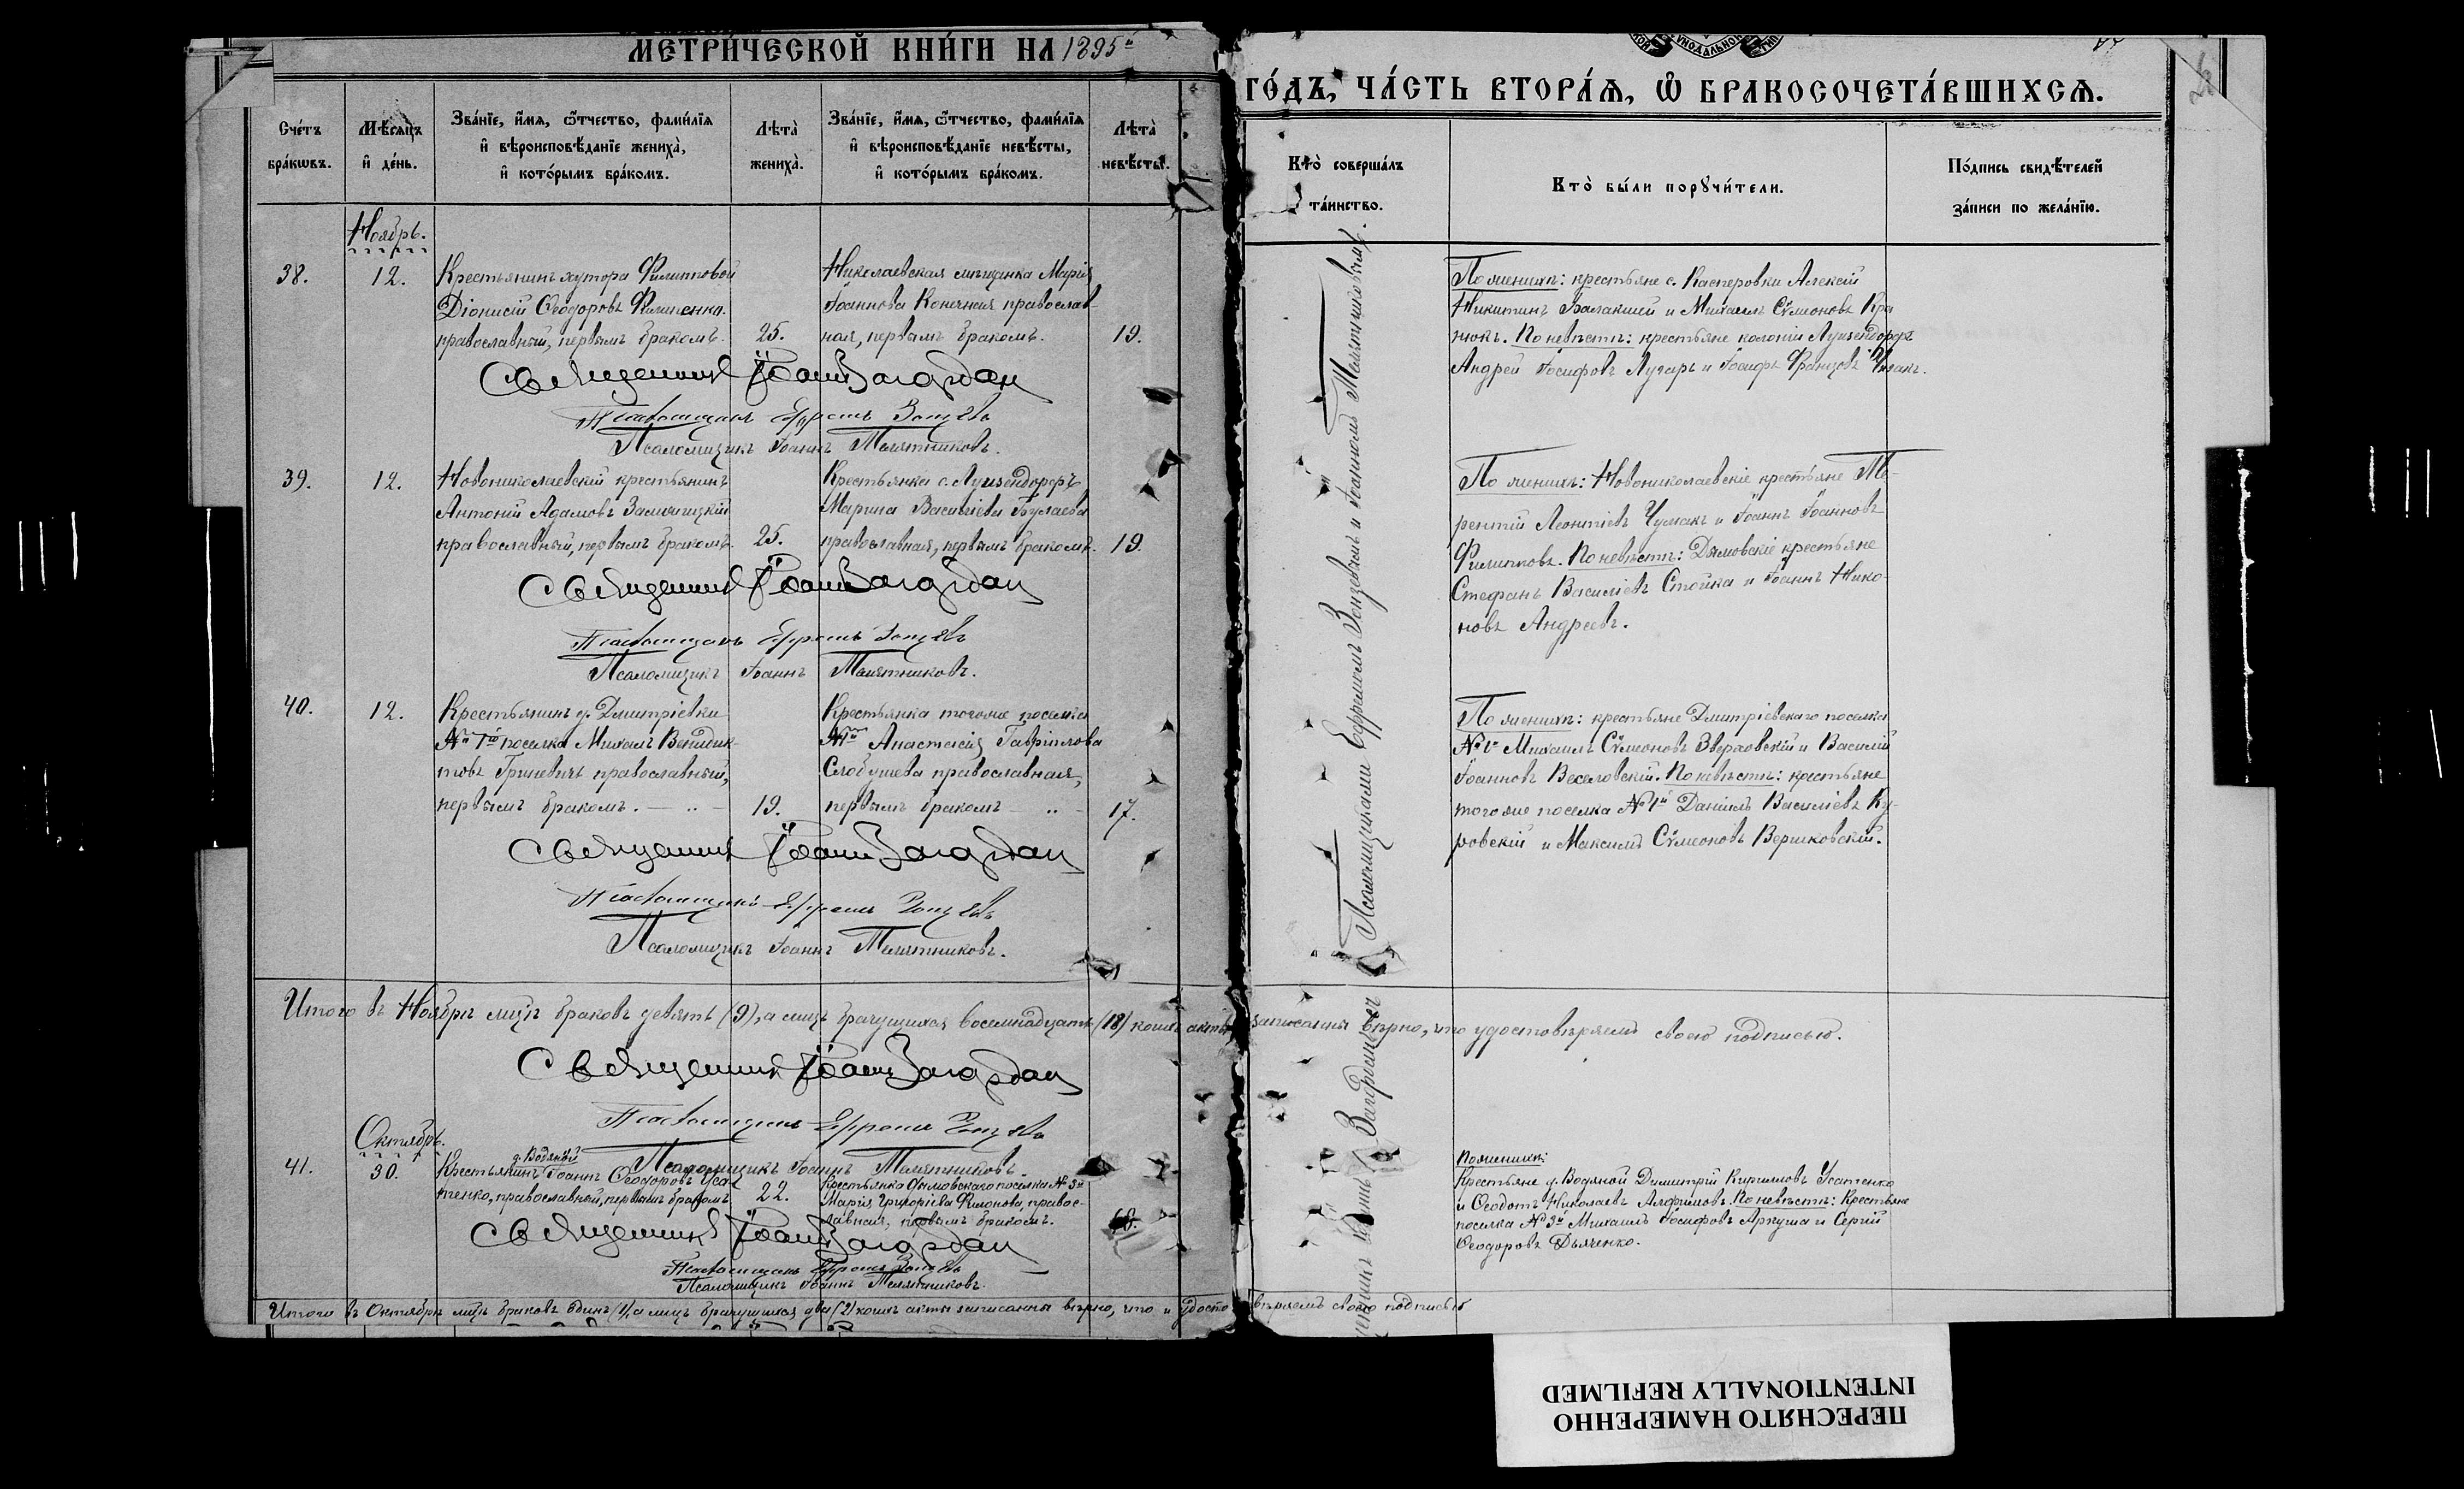 МЕТРИ́ЧЕСКОЙ КНИ́ГИ НА 1895й
ГО́ДЪ, ЧА́СТЬ ВТОРА́Ѧ, Ѡ҆ БРАКОСОЧЕТА́ВШИХСѦ.
Сче́тъ бра́кѡвъ.
Мѣ́сѧцъ и҆ де́нь.
Зва́нїе, и҆́мѧ, ѻ҆́тчество, фами́лїѧ
и҆ вѣроисповѣ́данїе жениха̀,
и҆ кото́рымъ бра́комъ.
Лѣта̀ жениха̀.
Зва́нїе, и҆́мѧ, ѻ҆́тчество, фами́лїѧ
и҆ вѣроисповѣ́данїе невѣ́сты,
и҆ кото́рымъ бра́комъ.
Лѣта̀ невѣ́сты.
Кто̀ соверша́лъ
та́инство.
Кто̀ бы́ли порꙋчи́тели.
По́дпись свидѣ́телей
за́писи по жела́нїю.
Ноябрь.
38.
12.
Крестьянинъ хутора Филипповой
Діонисій Ѳеодоровъ Филипенко.
православный, первымъ бракомъ.
25.
Николаевская мѣщанка Марія
Іоаннова Конечная православ-
ная, первымъ бракомъ.
19.
По женихѣ: крестьяне с. Касперовки Алексій
Никитинъ Балакшей и Михаилъ Сѵмеоновъ Кра
нюкъ. По невѣстѣ: крестьяне колоніи Луизендорфъ
Андрей Іосифовъ Лугаръ и Іосифъ Францовъ
Священникъ Іоаннъ Загордан
Псаломщикъ Ефремъ Зонзевъ
Псаломщикъ Іоаннъ Палятниковъ.
39.
12.
Новониколаевскій крестьянинъ
Антоній Адамовъ Замочицкій
православный, первымъ бракомъ.
25.
Крестьянка с. Луизендорфъ
Марина Василіева Булаева
православная, первымъ бракомъ.
19.
По женихѣ: Новониколаевскіе крестьяне Те-
рентій Леонтіевъ Чумакъ и Іоаннъ Іоанновъ
Филипповъ. По невѣстѣ: Дымовскіе крестьяне
Стефанъ Василіевъ Стойка и Іоаннъ Нико-
новъ Андреевъ.
Священникъ Іоаннъ Загордан
Псаломщикъ Ефремъ Зонзевъ
Псаломщикъ Іоаннъ Палятниковъ.
40.
12.
Крестьянинъ д. Дмитріевки
№ 1й поселка Михаилъ Венидик-
товъ Гриневичъ православный,
первымъ бракомъ.
19.
Крестьянка тогоже поселка
№1й Анастасія Гавріилова
Слободщева православная,
первымъ бракомъ
17.
По женихѣ: крестьяне Дмитріевскаго поселка
№ 1й Михаилъ Сѵмеоновъ Звержовскій и Василій
Іоанновъ Веселовскій. По невѣстѣ: крестьяне
тогоже поселка №1й Даніилъ Василіевъ Ку-
ровскій и Максимъ Сѵмеоновъ Вершковскій.
Священникъ Іоаннъ Загордан
Псаломщикъ Ефремъ Зонзевъ
Псаломщикъ Іоаннъ Палятниковъ.
Итого въ Ноябрѣ м-цѣ браковъ девять (9), а лицъ брачущихся восемнадцать (18) коихъ акты записаны вѣрно, что удостовѣряемъ своею подписью.
Священникъ Іоаннъ Загордан
Псаломщикъ Ефремъ Зонзевъ
Псаломщикъ Іоаннъ Палятниковъ.
Октябрь.
41.
30.
д. Водяной
Крестьянинъ Іоаннъ Ѳеодоровъ Уса-
тенко, православный, первымъ бракомъ
22.
Крестьянка Дымовскаго поселка № 3й
Марія Григоріева Филонова, правос-
лавная, первымъ бракомъ.
По женихѣ:
Крестьяне д. Водяной Димитрій Кирилловъ Усатенко
и Ѳеодотъ Николаевъ Алфимовъ. По невѣстѣ: Крестьяне
поселка № 3й Михаилъ Іосифовъ Аркуша и Сергій
Ѳеодоровъ Дьяченко.
Священникъ Іоаннъ Загордан
Псаломщикъ Ефремъ Зонзевъ
Псаломщикъ Іоаннъ Палятниковъ.
Итого въ Октябрѣ м-цѣ браковъ одинъ (1), а лицъ брачущихся два (2) коихъ акты записаны вѣрно, что и удостовѣряемъ своею подписью
Псаломщиками Ефремомъ Зонзевымъ и Іоанномъ Палятниковымъ.
ПЕРЕСНЯТО НАМЕРЕННО
INTENTIONALLY REFILMED